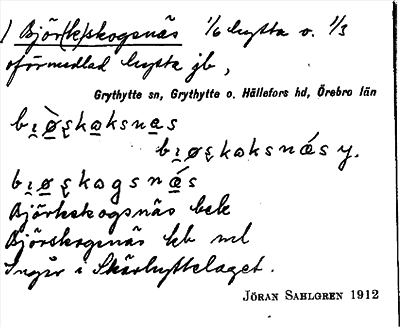 1) Björ(k)skogsnäs 1/6 hytta o. 1/3
oförmedlad hytta jb,
Grythytte sn, Grythytte o. Hällefors hd, Örebro län
bi̯ø̀ʂkɑksnæs
bi̯øʂkɑksnǽs y.
bi̯øʂkɑgsnǽs
Björkskogsnäs bebr
Björskogsnäs kb ml
Ingår i Skärhyttelaget.
JÖRAN SAHLGREN 1912